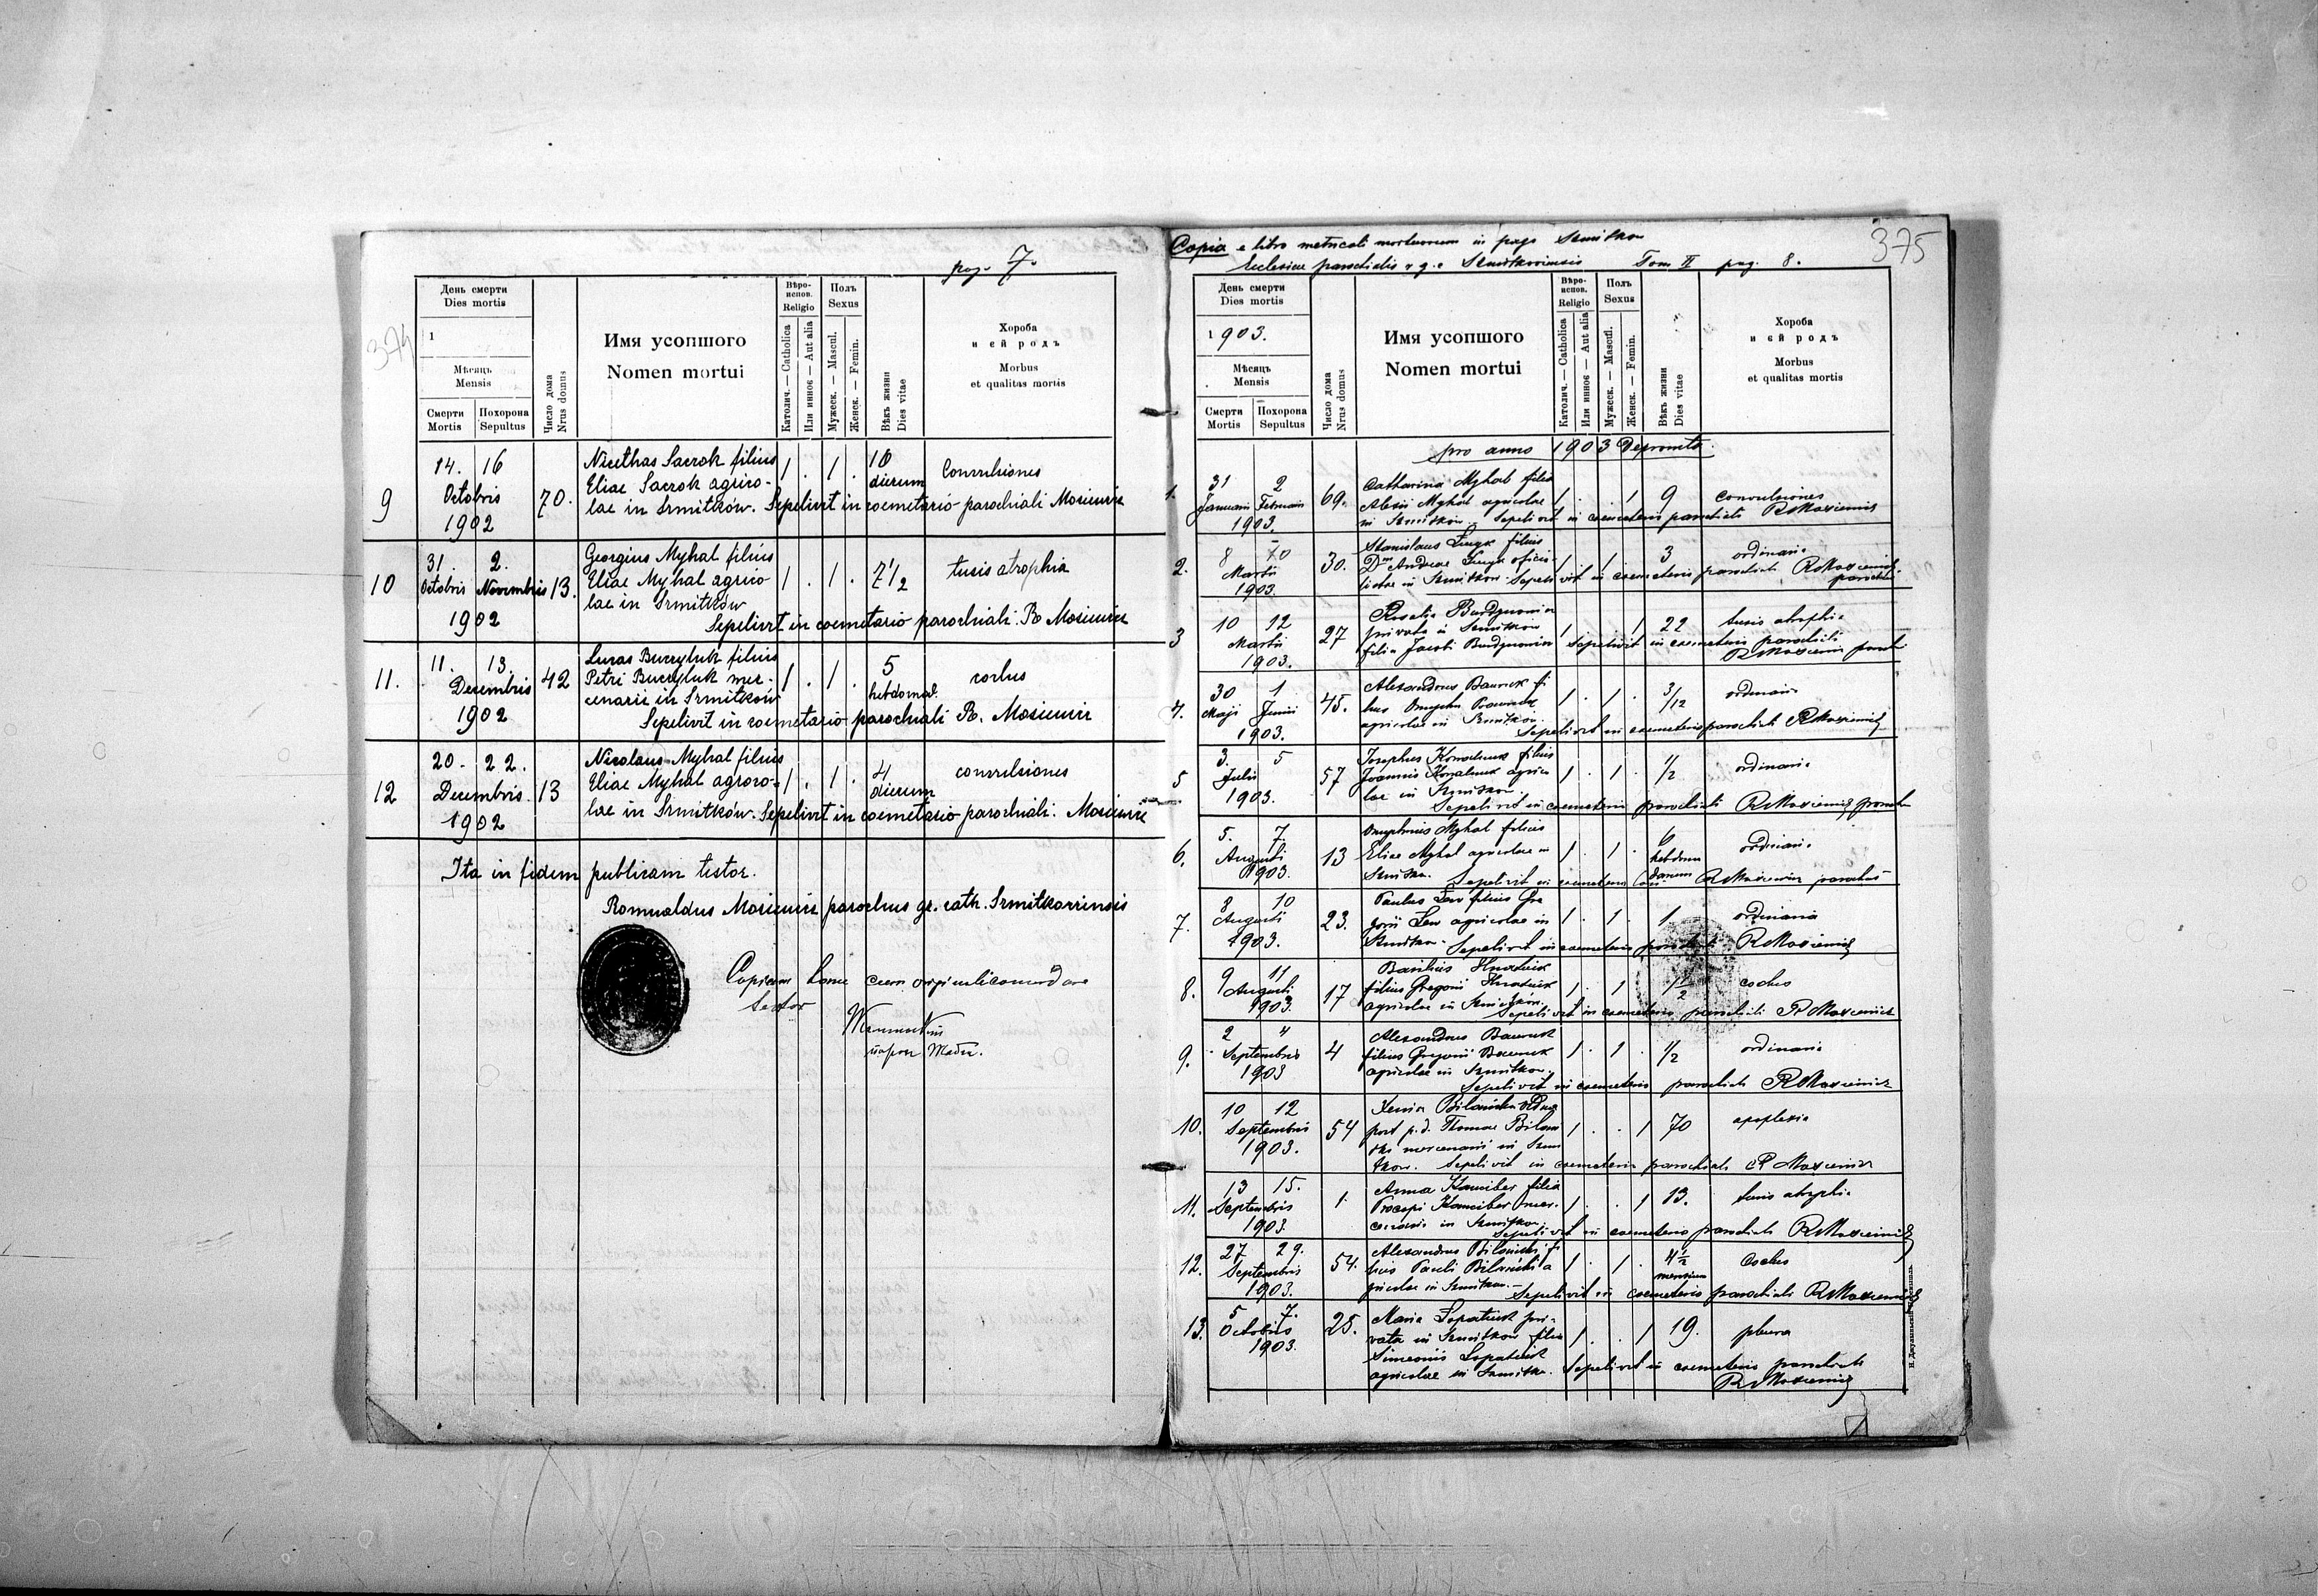 pag. 7.
374
День смерти
Dies mortis
1
Мѣсяць
Mensis
Смерти
Mortis
Похорона
Sepultus
Число дома
Nrus domus
Имя усопшого
Nomen mortui
Вѣро-
испов.
Religio
Католич. — Catholica
Или инное — Aut alia
Полъ
Sexus
Мужеск. — Mascul.
Женск. — Femin.
Вѣкъ жизни
Dies vitae
Хороба
и ей родъ
Morbus
et qualitas mortis
9
14. 16
Octobris
1902
70.
Nicethas Saczok filius
Eliae Saczok agrico-
lae in Szmitków. Sepelivit in coemetario parochiali Mosiewicz
1 . 1 .
10
dierum
Convulsiones
10
31. 2.
Octobris Novembris
1902
13.
Georgius Myhal filius
Eliae Myhal agrico
lae in Szmitków
Sepelivit in coemetario parochiali. R Mosiewicz
1 . 1 .
7 1/2
tusis atrophia
11.
11. 13.
Decembris
1902
42
Lucas Buczyluk filius
Petri Buczyluk mer-
cenarii in Szmitków
Sepelivit in coemetario parochiali R. Mosiewicz
1 . 1 .
5
hebdomad.
coclus
12
20. 22.
Decembris.
1902
13
Nicolaus Myhal filius
Eliae Myhal agrico-
lae in Szmitków. Sepelivit in coemetario parochiali. Mosiewicz
1 . 1 .
4
dierum
convulsiones
Ita in fidem publicam testor.
Romualdus Mosiewicz parochus gr. cath. Szmitkoviensis
Copiam hanc cum originali
testor
375
Copia e libro metricali mortuorum in pago Szmitkow
Ecclesiae parochialis r. g. c Szmitkoviensis Tom II pag. 8.
День смерти
Dies mortis
1903.
Мѣсяць
Mensis
Смерти
Mortis
Похорона
Sepultus
Число дома
Nrus domus
Имя усопшого
Nomen mortui
Вѣро-
испов.
Religio
Католич. — Catholica
Или инное — Aut alia
Полъ
Sexus
Мужеск. — Mascul.
Женск. — Femin.
Вѣкъ жизни
Dies vitae
Хороба
и ей родъ
Morbus
et qualitas mortis
pro anno 1903 Depromta.
1.
31 2
Januarii Februarii
1903.
69.
Catharina Myhal filia
Alexii Myhal agricolae
in Szmitkow. Sepelivit in coemeterio parochiali RMosiewicz
1 . . 1
9
convulsiones
2.
8 10
Martii
1903.
30.
Stanislaus filius
Andreae
in Szmitkow. Sepelivit in coemeterio parochiali RMosiewicz
parochus
1 . 1 .
3
ordinaria
3
10 12
Martii
1903.
27
Rosalia
privata in Szmitkow
filia Jacobi Sepelivit in coemeterio parochiali
RMosiewicz paroch
1 . . 1
22
tusis atrophia
4.
30 1
Maji Junii
1903.
45.
Alexandrus fi
lius
agricolae in Szmitkow.
Sepelivit in coemeterio parochiali RMosiewicz
1 . 1 .
3/12
ordinaria
5
3. 5
Julii
1903.
57
Josephus Kowalczuk filius
Joannis Kowalczuk agrico
lae in Szmitkow.
Sepelivit in coemeterio parochiali RMosiewicz paroch
1 . 1 .
1/2
ordinaria
6.
5. 7.
Augusti
1903.
13
Onuphrius Myhal filius
Eliae Myhal agricolae in
Szmitkow. Sepelivit in coemeterio RMosiewicz parochus
1 . 1 .
6
hebdoma
darum
ordinaria
7.
8 10
Augusti
1903.
23.
Paulus Lew filius Gre
gorii Lew agricolae in
Szmitkow. Sepelivit in coemeterio RMosiewicz
1 . 1 .
1.
ordinaria
8.
9 11
Augusti
1903.
17
Basilius Hnatiuk
filius Gregorii Hnatiuk
agricolae in Szmitkow.
Sepelivit in coemeterio parochiali R Mosiewicz
1 . 1
1/2
coclus
9.
2 4
Septembris
1903
4
Alexandrus
filius Gregorii
agricolae in Szmitkow.
Sepelivit in coemeterio parochiali RMosiewicz
1 . 1 .
1/2
ordinaria
10.
10 12
Septembris
1903.
54
Xenia Bilanicka vidua
post p. d. Thomae Bilani
cki mercenarii in Szmi
tkow. Sepelivit in coemeterio parochiali R Mosiewicz
1 . . 1
70
apoplexia
11.
13 15.
Septembris
1903.
1.
Anna filia
Procopi mer-
cenarii in Szmitkow.
Sepelivit in coemeterio parochiali RMosiewicz
1 . . 1
13.
tusis atrophia
12.
27 29.
Septembris
1903.
54.
Alexandrus Bilanicki fi
lius Pauli Bilanicki a
gricolae in Szmitkow.
Sepelivit in coemeterio parochiali RMosiewicz
1 . 1 .
4 1/2
mensium
Coclus
13.
5 7.
Octobris
1903.
25.
Maria Lopatiuk pri-
vata in Szmitkow filia
Simeonis Lopatiuk
agricolae in Szmitkow. Sepelivit in coemeterio parochiali
RMosiewicz
1 . . 1
19.